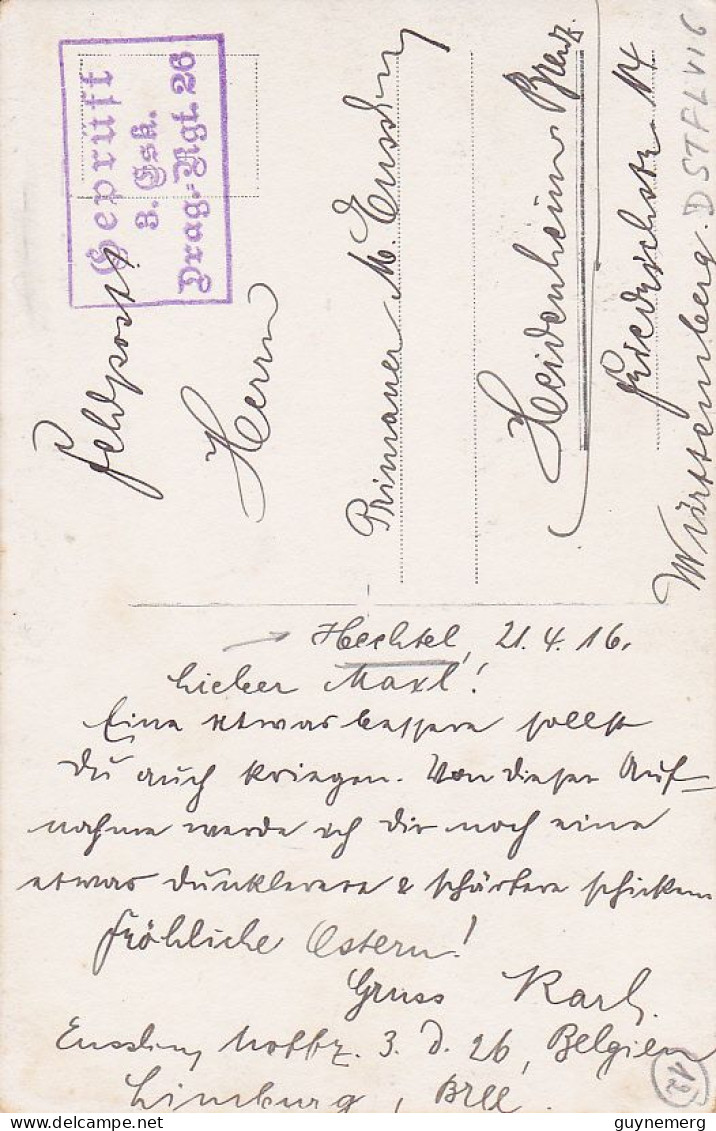 Geprüft
3. Esk.
Drag.-Rgt. 26
Feldpost!
Herrn
Primaner M. Ensslin
Heidenheim Brenz.
Friedrichstr. 14
Württemberg.
DSTFLV16
Hechtel, 21.4.16.
Lieber Maxl!
Eine etwas bessere sollst
Du auch kriegen. Von dieser Auf-
nahme werde ich Dir noch eine
etwas dunklere & schärfere schicken
Fröhliche Ostern!
Gruss Karl.
Ensslin, 3. D. 26, Belgien
Limburg, Bree.
12
guynemerg